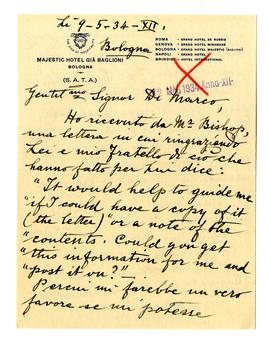 Li 9-5-34-XII.
Bologna
MAJESTIC HOTEL GIÀ BAGLIONI
BOLOGNA
(S.A.T.A.)
ROMA - GRAND HOTEL DE RUSSIE
GENOVA - GRAND HOTEL MIRAMARE
BOLOGNA - GRAND HOTEL MAJESTIC (BAGLIONI)
NAPOLI - GRAND HOTEL
BRINDISI - HOTEL INTERNATIONAL
1934 Anno XII
Gentilmo Signor De Marco,
Ho ricevuto da Mr Bishop,
una lettera in cui ringraziando
Lei e mio Fratello di ciò che
hanno fatto per lui dice:
"It would help to guide me
"if I could have a copy of it
(the letter) "or a note of the
"contents. Could you get
"this information for me and
"post it on?"—
Perciò mi farebbe un vero
favore se mi potesse